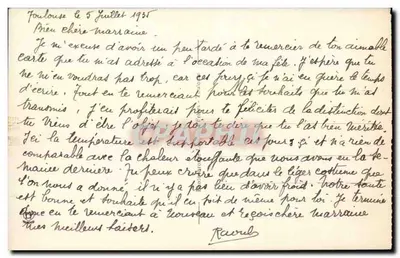 Toulouse le 5 Juillet 1935
Bien chère marraine
Je m'excuse d'avoir un peu tardé à te remercier de ton aimable
carte que tu m'as adressé à l'occasion de ma fête. J'espère que tu
ne m'en voudras pas trop, car ces jours ci je n'ai eu guère le temps
d'écrire. Tout en te remerciant pour les souhaits que tu m'as
transmis, j'en profiterais pour te féliciter de la distinction dont
tu viens d'être l'objet, je dois te dire que tu l'as bien méritée.
Ici la température est supportable ces jours ci et n'a rien de
comparable avec la chaleur étouffante que nous avons eu la se-
maine dernière. Tu peux croire que dans le léger costume que
l'on nous a donné, il n'y a pas lieu d'avoir froid. Notre santé
est bonne et souhaite qu'il en soit de même pour toi. Je termine
en te remerciant à nouveau et reçois chère marraine
mes meilleurs baisers.
Raoul